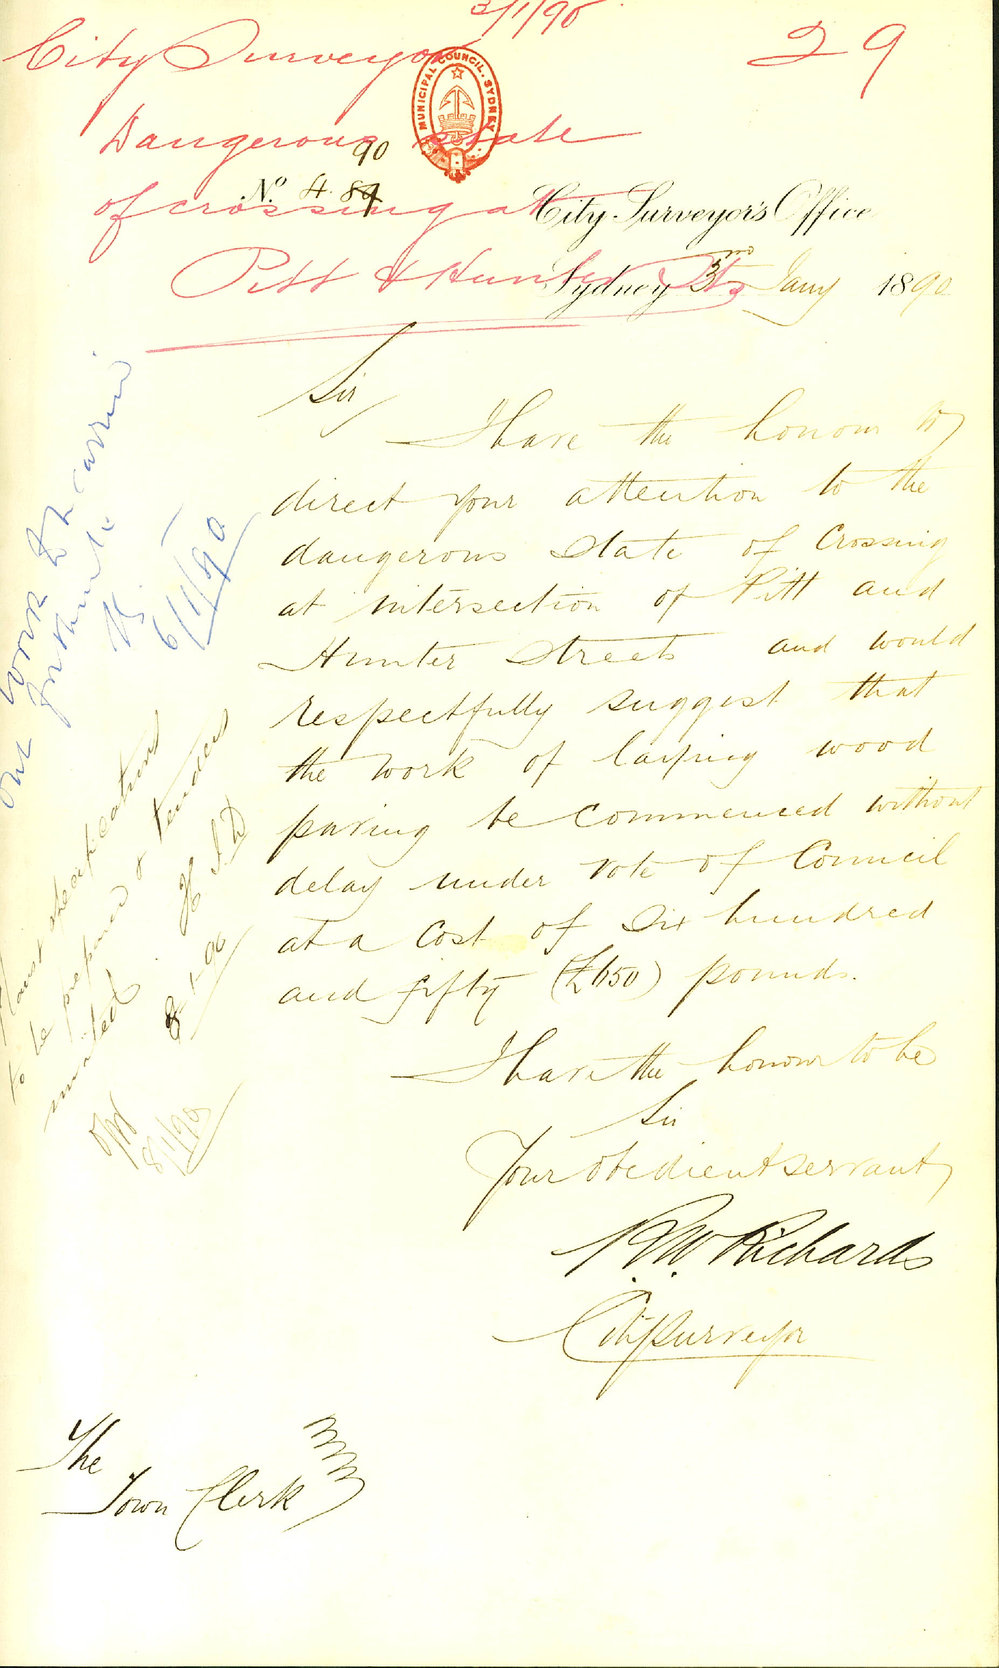 3/1/90
29
City Surveyor
Dangerous state
of crossing at
Pitt & Hunter Sts
MUNICIPAL COUNCIL. SYDNEY
No 4.89 90
City Surveyor's Office
Sydney 3rd Jany 1890
Sir
I have the honour to
direct your attention to the
dangerous State of Crossing
at intersection of Pitt and
Hunter Streets and would
respectfully suggest that
the work of laying wood
paving be commenced without
delay under vote of Council
at a Cost of Six hundred
and fifty (£650) pounds.
I have the honour to be
Sir
Your obedient servant
R.W. Richards
City Surveyor
The
Town Clerk
work to be carried
out forthwith
6/1/90
specifications
to be prepared & tenders
invited
8-1-90
8/1/90